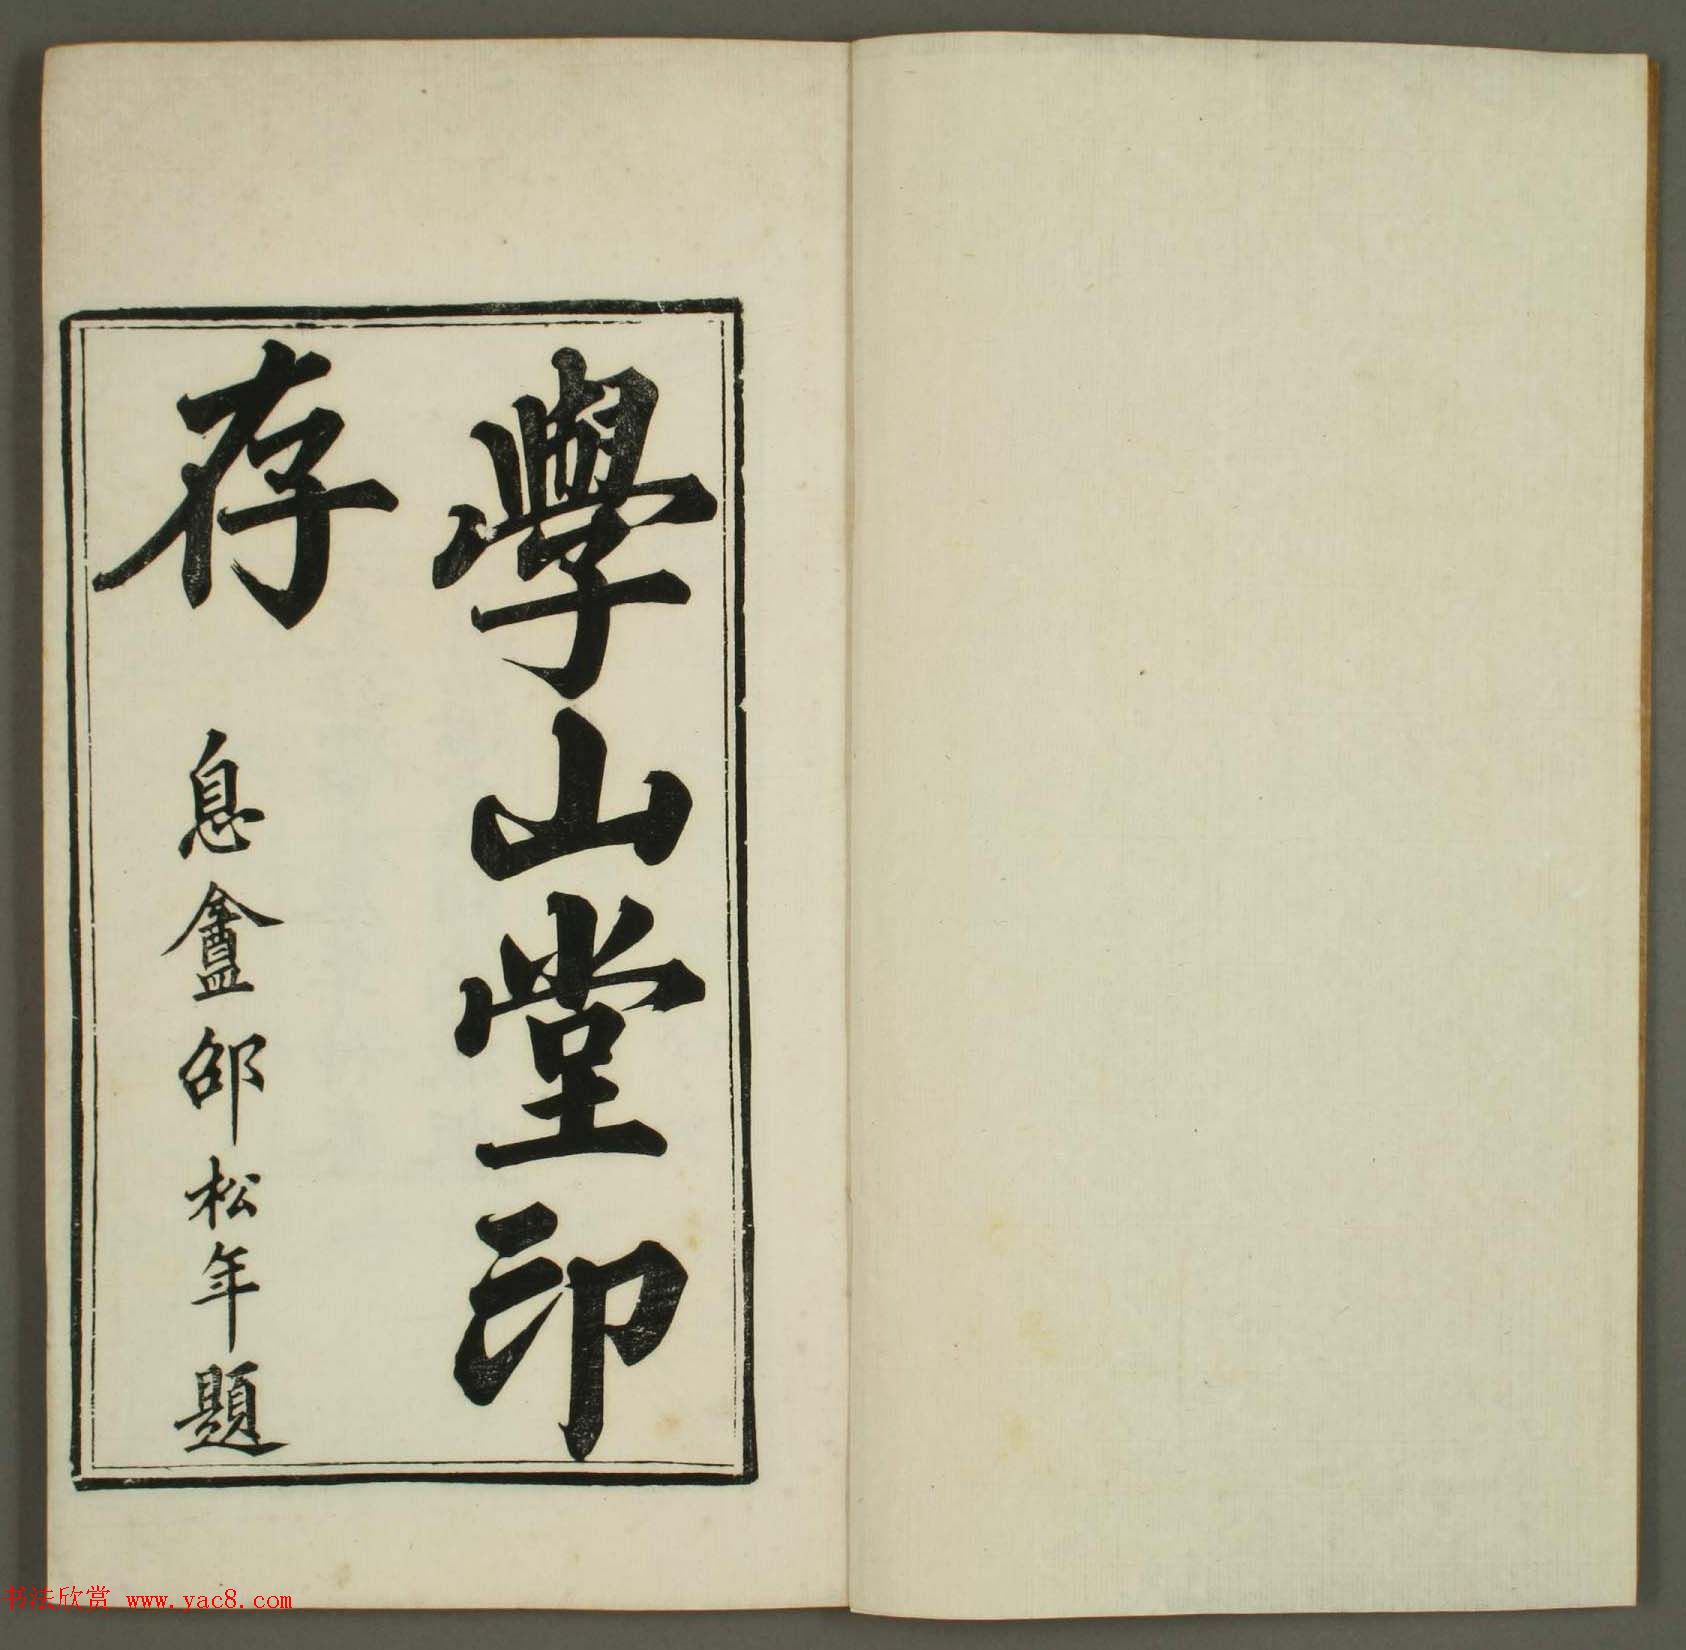 學山堂印
存
息盦邵松年題
书法欣赏 www.yac8.com